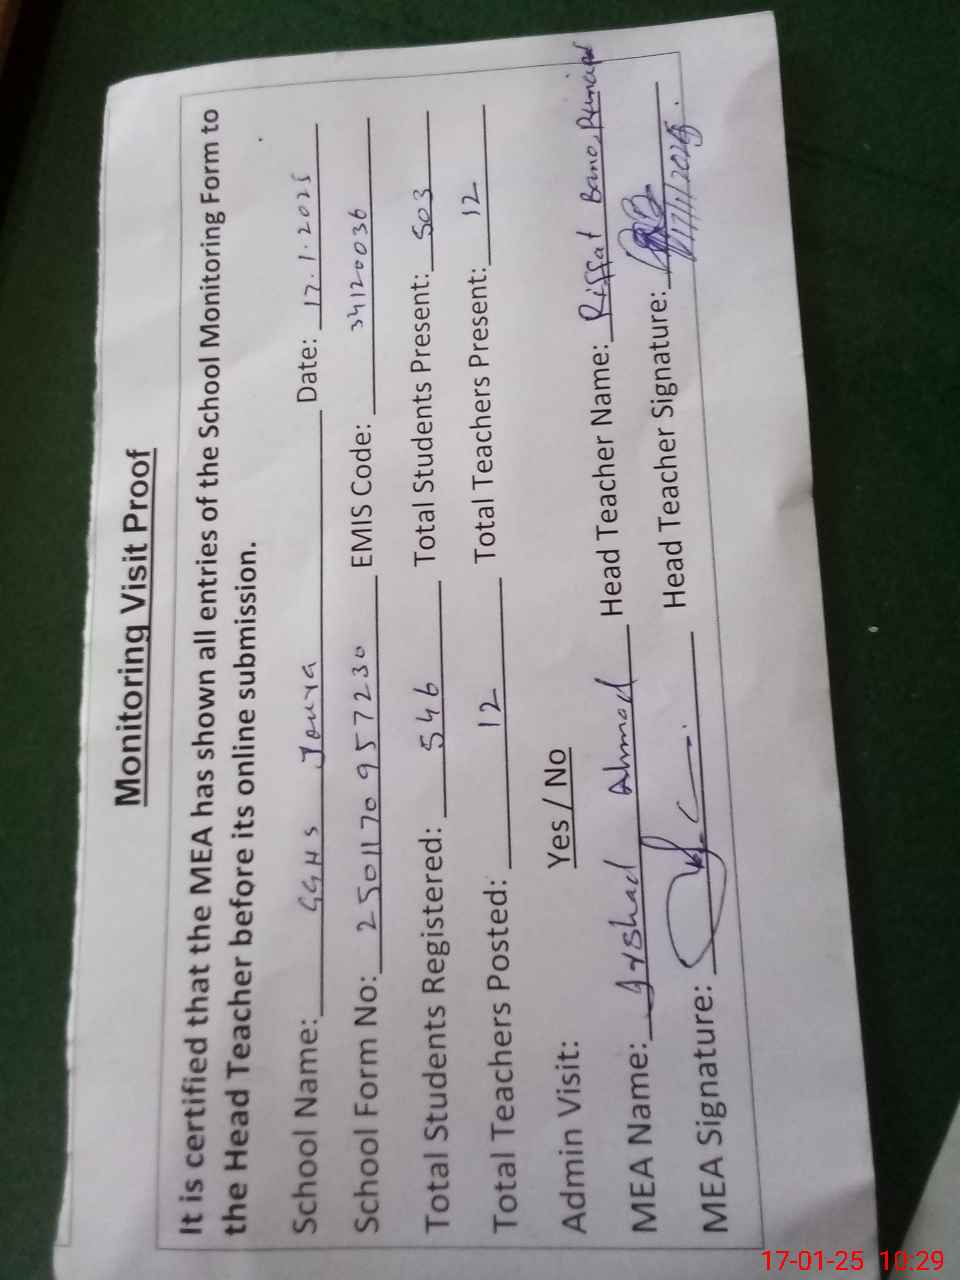 Monitoring Visit Proof
It is certified that the MEA has shown all entries of the School Monitoring Form to
the Head Teacher before its online submission.
School Name: GGHS Joura Date: 17.1.2025
School Form No: 2501170957230 EMIS Code: 34120036
Total Students Registered: 546 Total Students Present: 503
Total Teachers Posted: 12 Total Teachers Present: 12
Admin Visit: Yes / No
MEA Name: Irshad Ahmad Head Teacher Name: Riffat Bano, Principal
MEA Signature: Head Teacher Signature: 17/1/2025
17-01-25 10:29